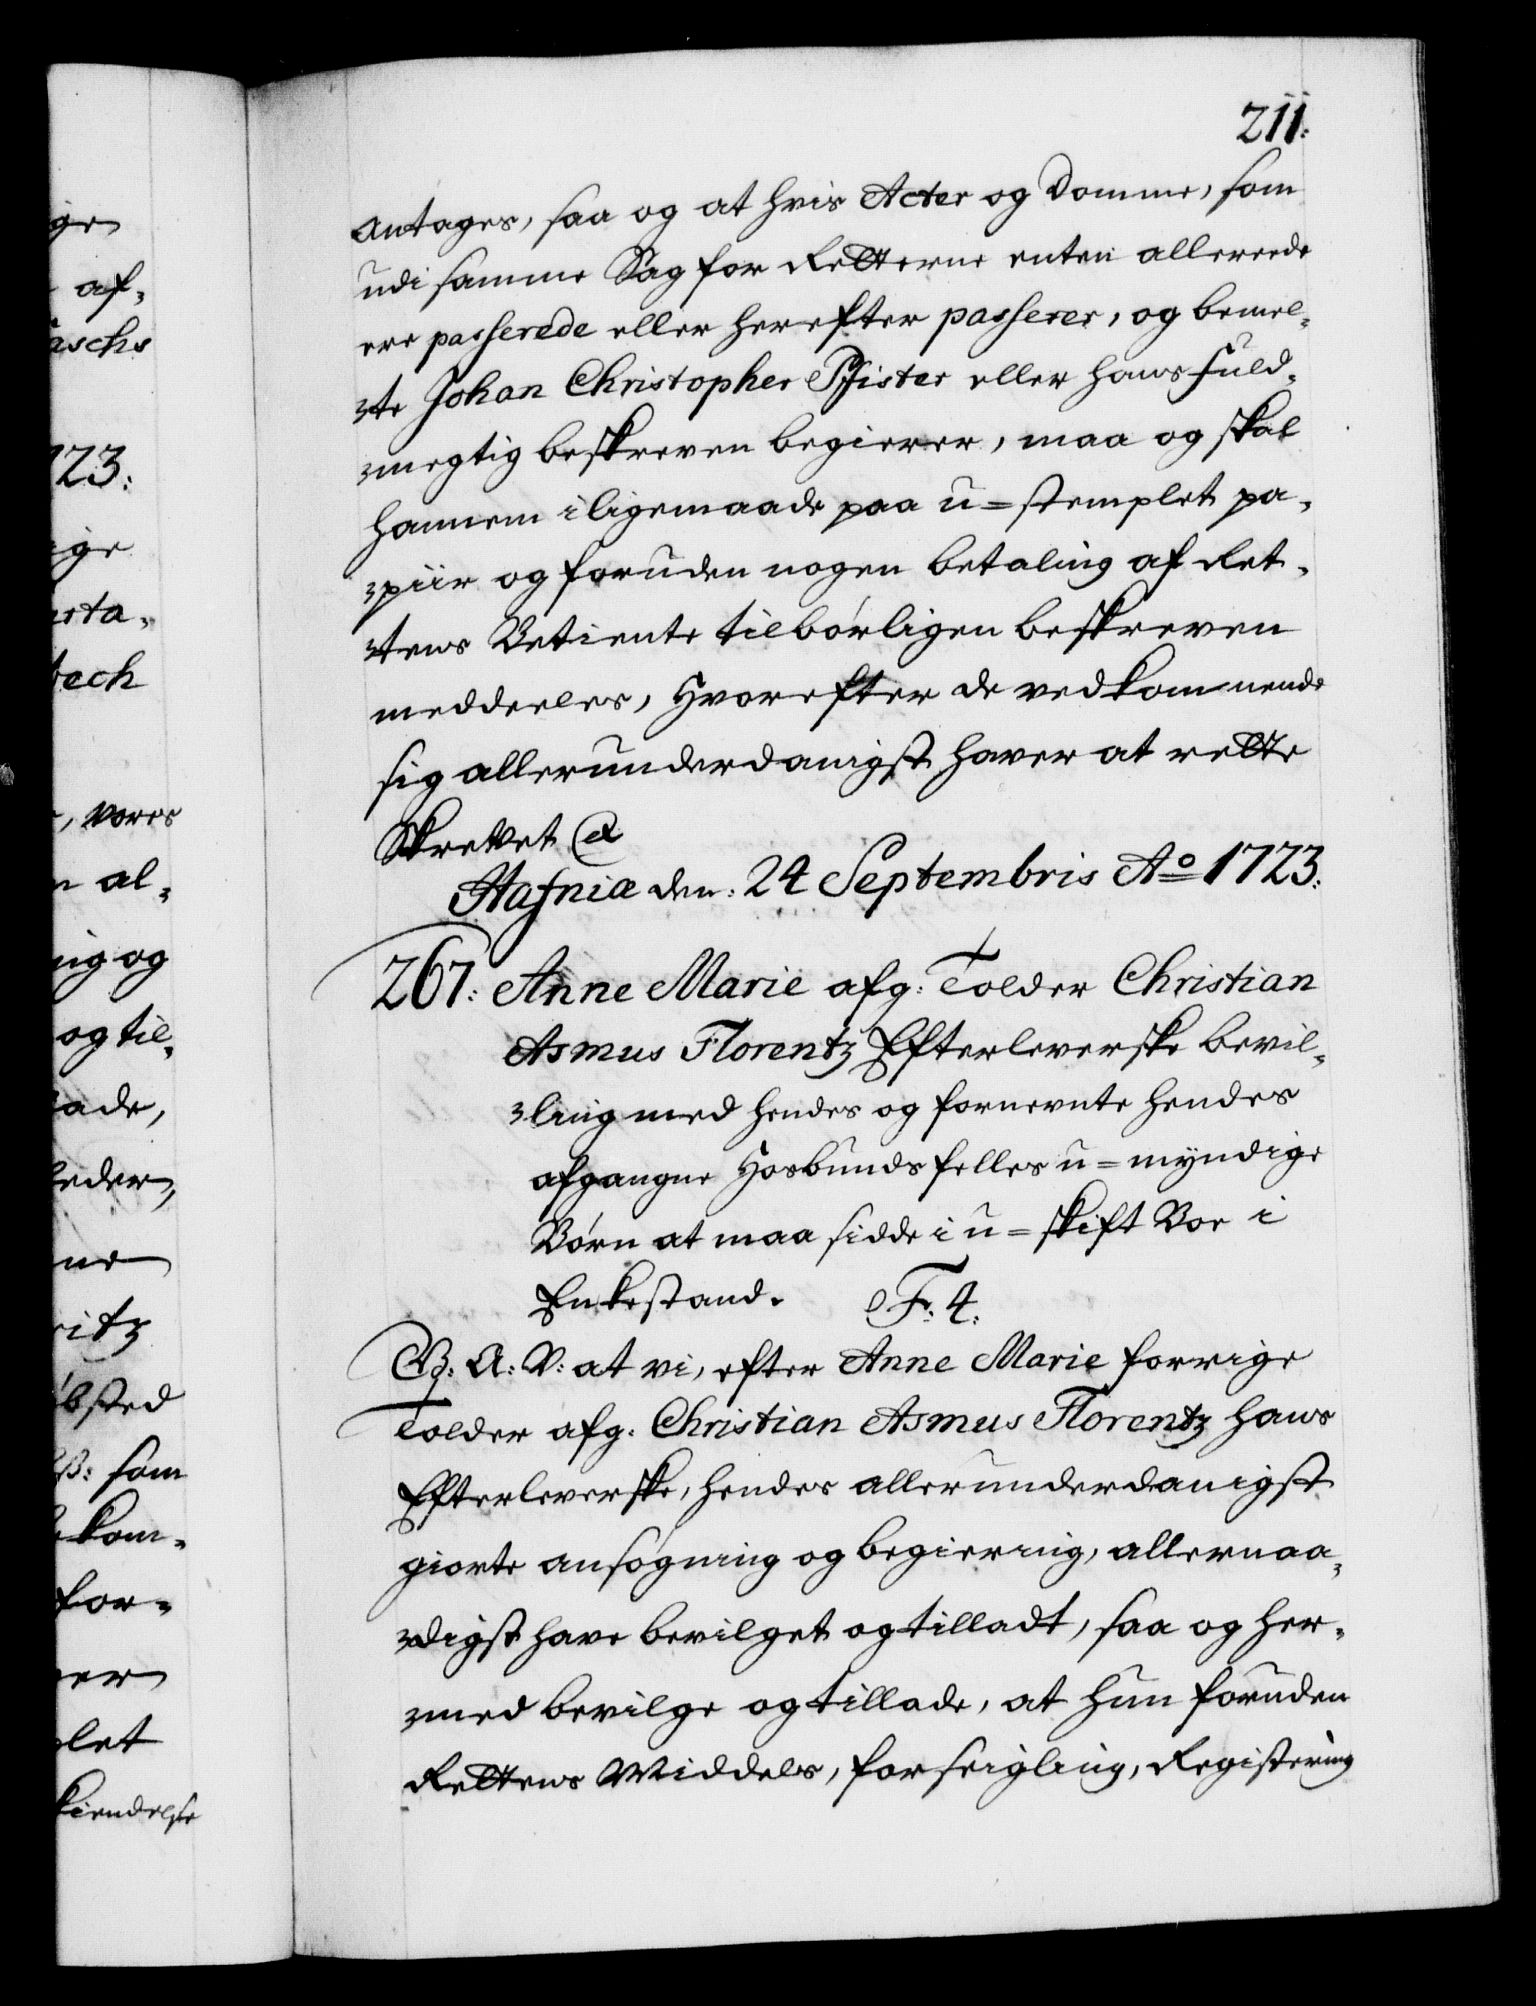 211.
antages, saa og at hvis Acter og Domme, som
udi samme Sag for Retterne enten allereede
ere passerede eller herefter passerer, og bemel-
te Johan Christopher Pfister eller hans Fuld-
megtig beskreven begierer, maa og skal
hannem iligemaade paa u-stemplet pa-
piir og foruden nogen betaling af Ret-
tens Betiente tilbörligen beskreven
meddeeles, Hvorefter de vedkommende
sig allerunderdanigst haver at rette
Skrevet &
Hafniæ den: 24 Septembris Ao 1723.
267: Anne Marie afg: Tolder Christian
Asmus Florentz Efterleverske bevil-
ling med hendes og fornevnte hendes
afgangne Hosbunds felles u-myndige
Börn at maa sidde i u-skift Boe i
Enkestand. F: 4.
G: A: V: at vi, efter Anne Marie forrige
Tolder afg. Christian Asmus Florentz hans
Efterleverske, hendes allerunderdanigst
giorte ansögning og begiering, allernaa-
digst have bevilget og tilladt, saa og her-
med bevilge og tillade, at hun foruden
Rettens Middels, forseigling, Registering
ge
af-
aschs
723:
ige
rta-
bech
, vores
al-
ng og
og til-
ade,
eder,
ne
ritz
bsted
som
kom-
for-
er
let
kiendelse